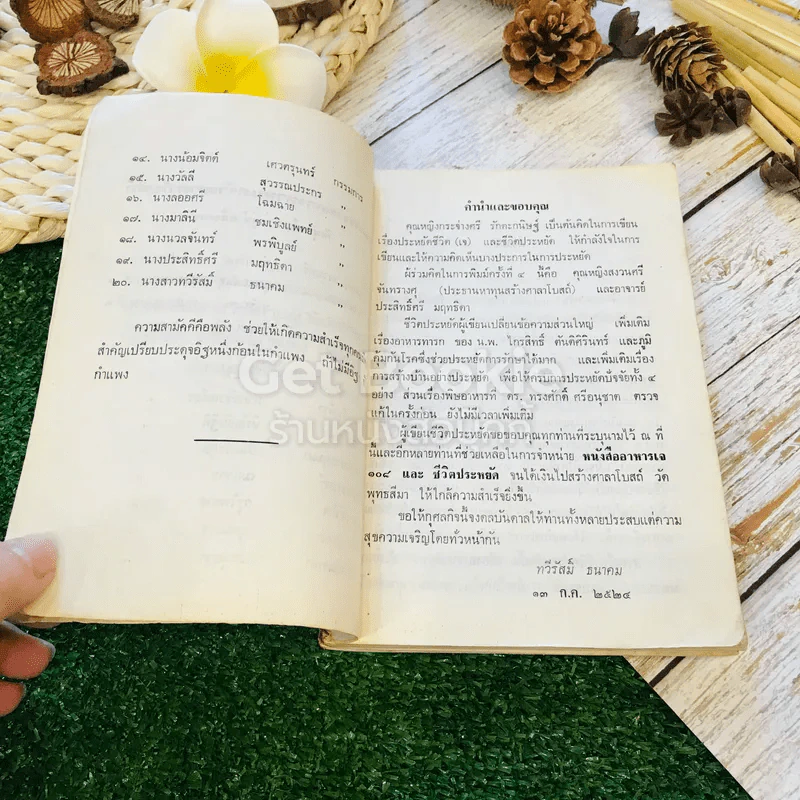 ๑๔. นางน้อมจิตต์ เศวตรุนทร์ กรรมการ
๑๕. นางวัลลี สุวรรณประกร "
๑๖. นางลออศรี โฉมฉาย "
๑๗. นางมาลินี ชมเชิงแพทย์ "
๑๘. นางนวลจันทร์ พรพิบูลย์ "
๑๙. นางประสิทธิ์ศรี มฤทธิดา "
๒๐. นางสาวทวีรัสมิ์ ธนาคม "
ความสามัคคีคือพลัง ช่วยให้เกิดความสำเร็จทุก
สำคัญเปรียบประดุจอิฐหนึ่งก้อนในกำแพง ถ้าไม่มีอิฐ
กำแพง
คำนำและขอบคุณ
คุณหญิงกระจ่างศรี รักตะกนิษฐ์ เป็นต้นคิดในการเขียน
เรื่องประหยัดชีวิต (เจ) และชีวิตประหยัด ให้กำลังใจในการ
เขียนและให้ความคิดเห็นบางประการในการประหยัด
ผู้ร่วมคิดในการพิมพ์ครั้งที่ ๔ นี้คือ คุณหญิงสงวนศรี
จันทรางศุ (ประธานหาทุนสร้างศาลาโบสถ์) และอาจารย์
ประสิทธิ์ศรี มฤทธิดา
ชีวิตประหยัดผู้เขียนเปลี่ยนข้อความส่วนใหญ่ เพิ่มเติม
เรื่องอาหารทารก ของ น.พ. ไกรสิทธิ์ ตันติศิรินทร์ และภูมิ
คุ้มกันโรคซึ่งช่วยประหยัดการรักษาได้มาก และเพิ่มเติมเรื่อง
การสร้างบ้านอย่างประหยัด เพื่อให้ครบการประหยัดปัจจัยทั้ง ๔
อย่าง ส่วนเรื่องพืชอาหารที่ ดร. ทรงศักดิ์ ศรีอนุชาต ตรวจ
แก้ในครั้งก่อน ยังไม่มีเวลาเพิ่มเติม
ผู้เขียนชีวิตประหยัดขอขอบคุณทุกท่านที่ระบุนามไว้ ณ ที่
นี้และอีกหลายท่านที่ช่วยเหลือในการจำหน่าย หนังสืออาหารเจ
๑๐๘ และ ชีวิตประหยัด จนได้เงินไปสร้างศาลาโบสถ์ วัด
พุทธสีมา ให้ใกล้ความสำเร็จยิ่งขึ้น
ขอให้กุศลกิจนี้จงดลบันดาลให้ท่านทั้งหลายประสบแต่ความ
สุขความเจริญโดยทั่วหน้ากัน
ทวีรัสมิ์ ธนาคม
๑๓ ก.ค. ๒๕๒๔
Get Bookie